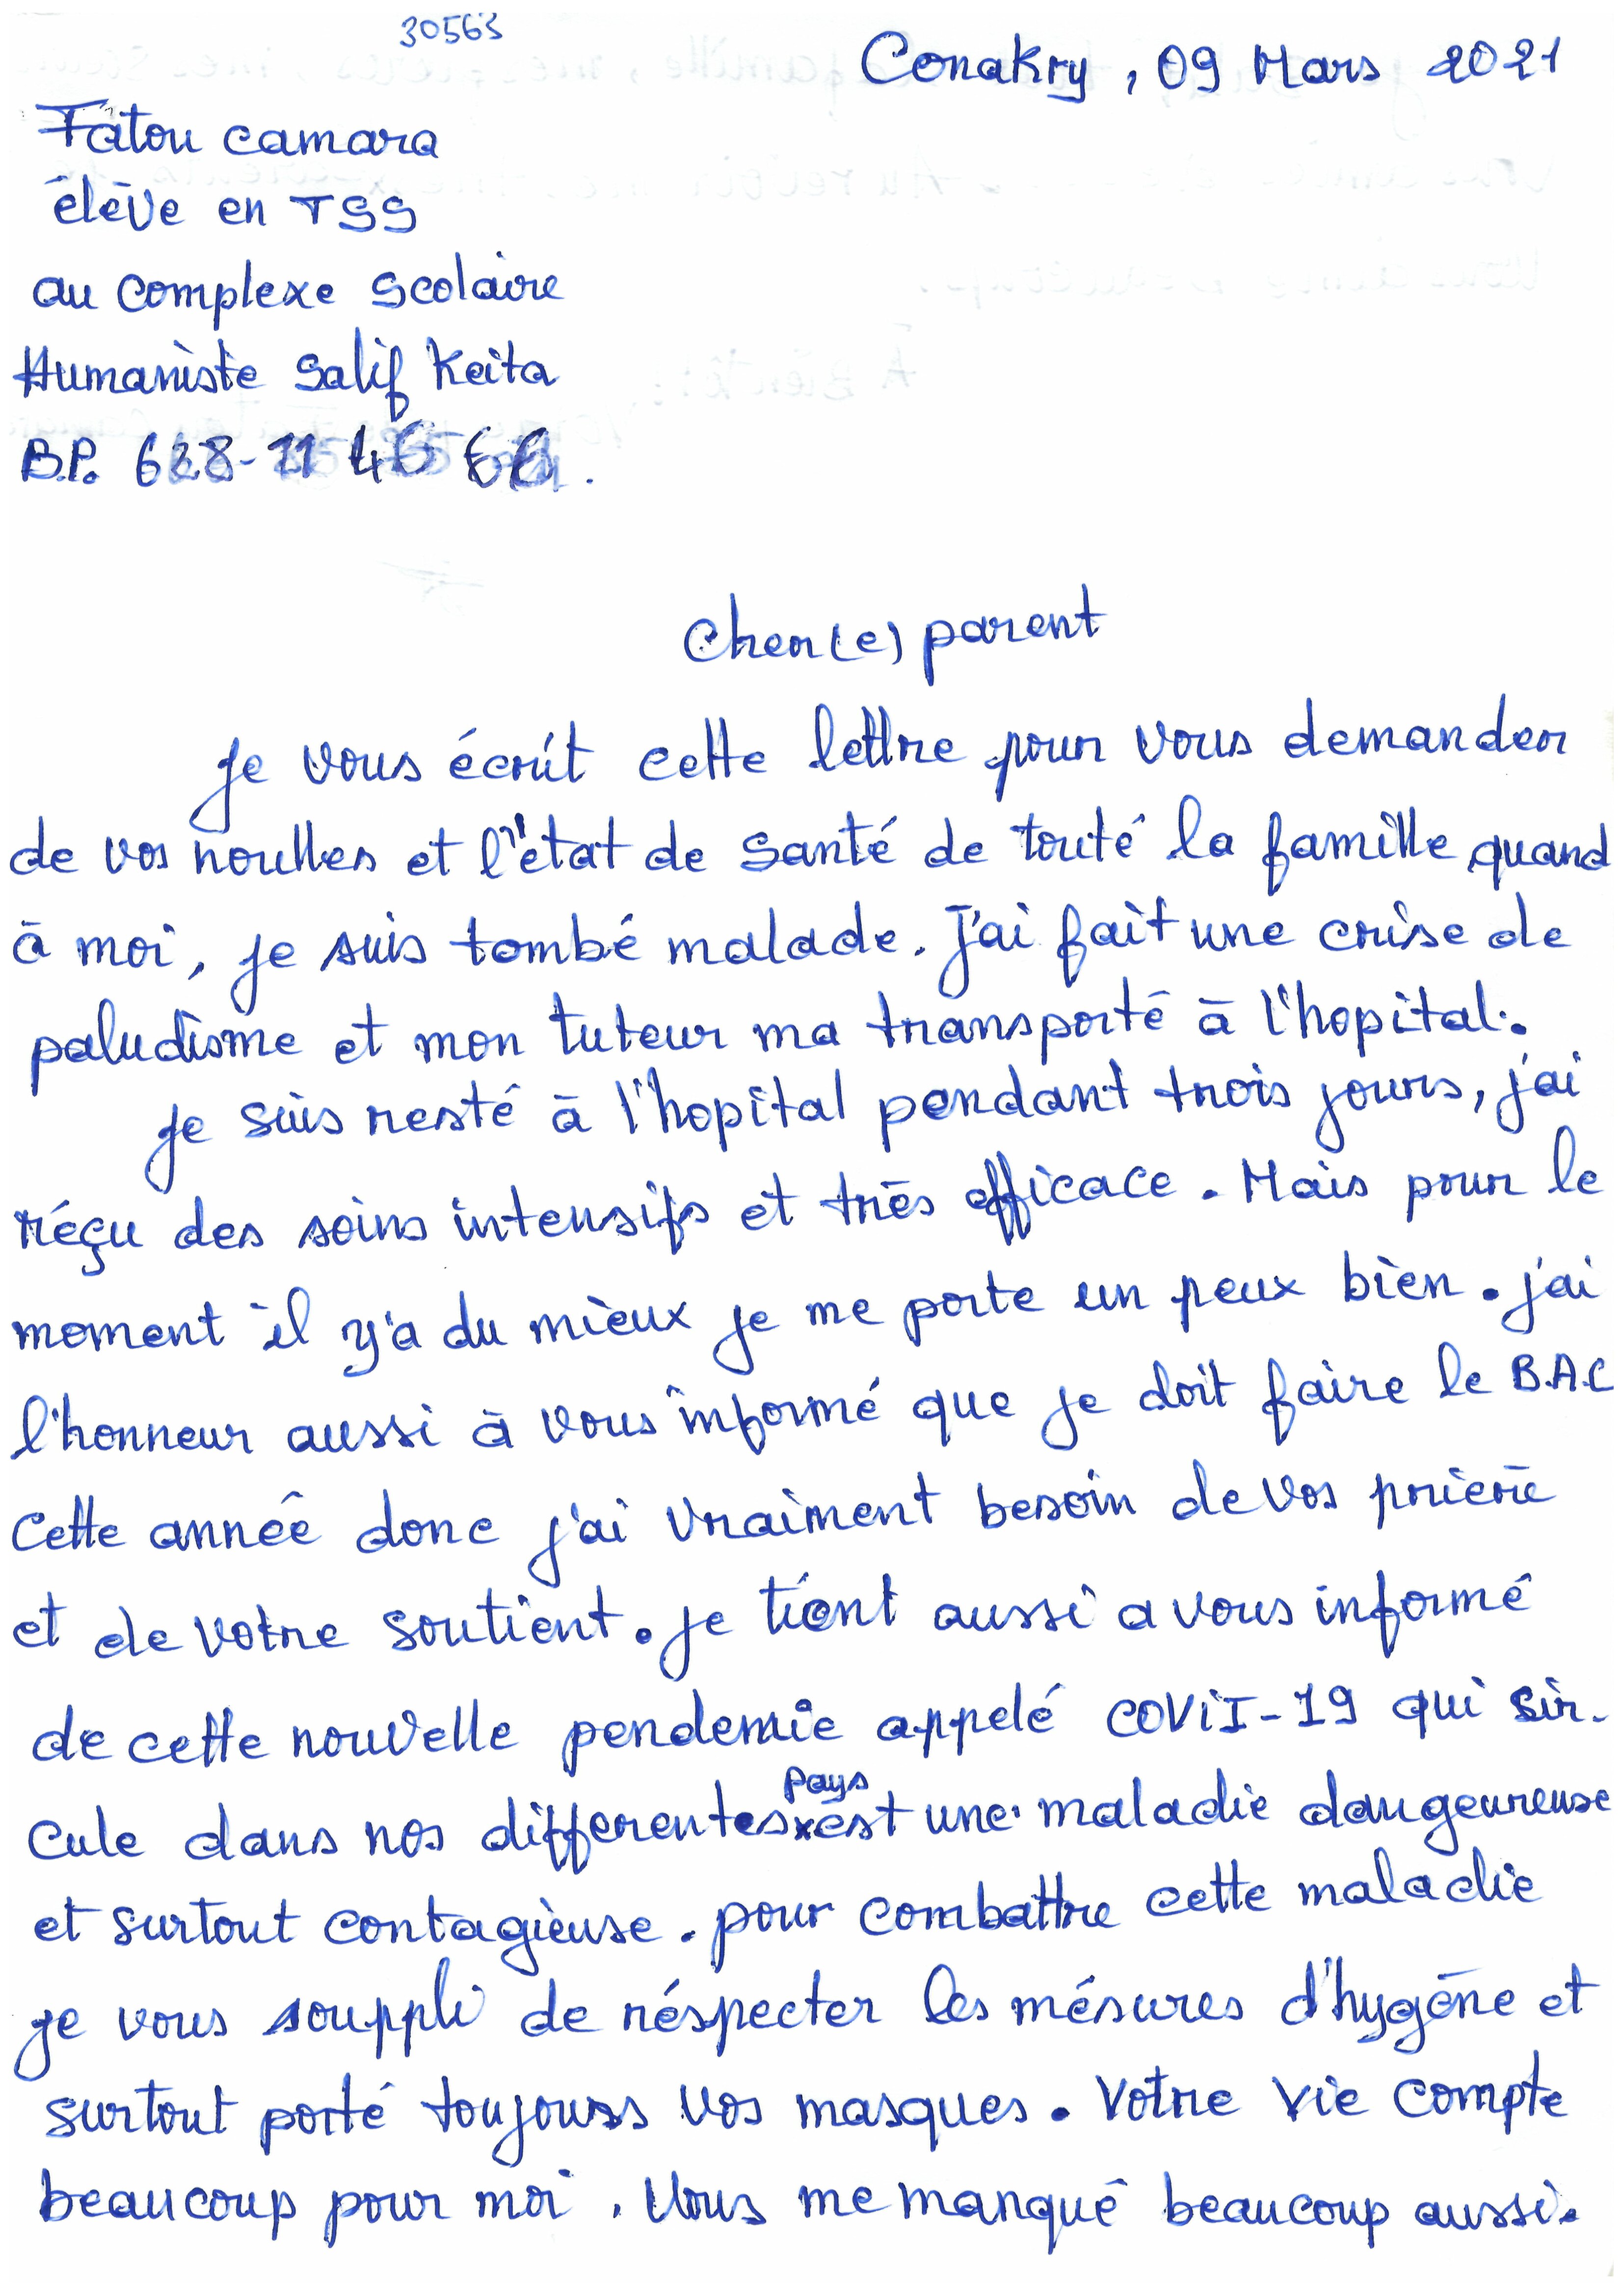 30563
Conakry, 09 Mars 2021
Fatou camara
élève en TSS
au complexe scolaire
Humaniste Salif Keita
B.P. 628-11 46 66.
Cher(e) parent
Je vous écrit cette lettre pour vous demander
de vos noulles et l'état de santé de touté la famille quand
à moi, je suis tombé malade. J'ai fait une crise de
paludisme et mon tuteur ma transporté à l'hopital.
Je suis resté à l'hopital pendant trois jours, j'ai
réçu des soins intensifs et très efficace. Mais pour le
moment il y'a du mieux je me porte un peux bien. j'ai
l'honneur aussi à vous informé que je doit faire le B.A.C
cette année donc j'ai vraiment besoin de vos prière
et de votre soutient. je tient aussi a vous informé
de cette nouvelle pendemie appelé COViI-19 qui sir-
cule dans nos differentes pays est une maladie daugeureuse
et surtout contagieuse. pour combattre cette maladie
je vous souppli de réspecter les mésures d'hygène et
surtout porté toujours vos masques. Votre vie compte
beaucoup pour moi. Vous me manqué beaucoup aussi.